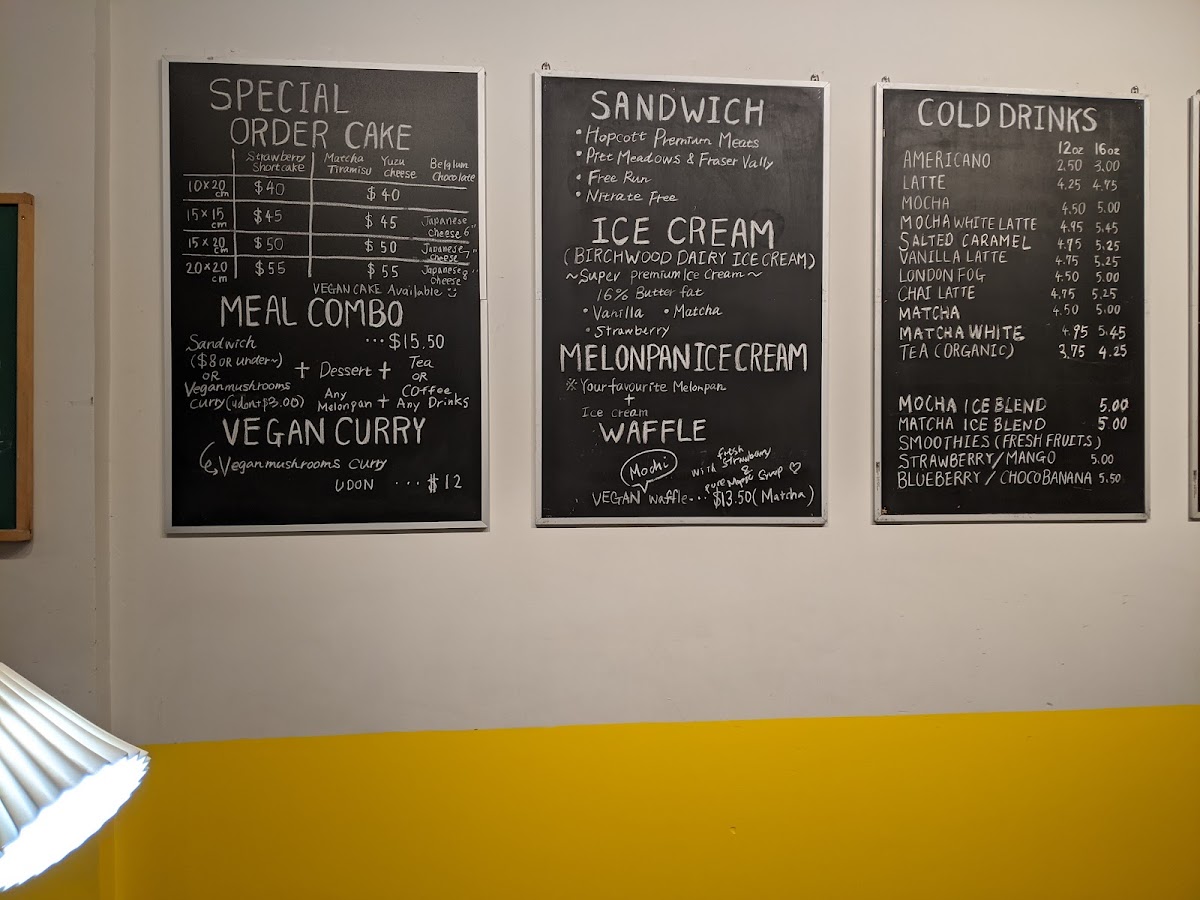 SPECIAL
ORDER CAKE
Strawberry Shortcake Matcha Tiramisu Yuzu cheese Belgium Chocolate
10×20 cm $40 $40
15×15 cm $45 $45 Japanese cheese 6"
15×20 cm $50 $50 Japanese cheese 7"
20×20 cm $55 $55 Japanese cheese 8"
VEGAN CAKE Available
MEAL COMBO
Sandwich ··· $15.50
($8 OR under~) + Dessert + Tea
OR OR
Vegan mushrooms Any Coffee
Curry (udon+$3.00) Melonpan + Any Drinks
VEGAN CURRY
Vegan mushrooms Curry
UDON ··· $12
SANDWICH
• Hopcott Premium Meats
• Pitt Meadows & Fraser Vally
• Free Run
• Nitrate Free
ICE CREAM
(BIRCHWOOD DAIRY ICE CREAM)
~Super premium Ice Cream~
16% Butter fat
• Vanilla • Matcha
• Strawberry
MELONPAN ICE CREAM
※ Your favourite Melonpan
+
Ice cream
WAFFLE
Mochi with fresh strawberry
& pure Maple Syrup ♡
VEGAN waffle··· $13.50 (Matcha)
COLD DRINKS
12oz 16oz
AMERICANO 2.50 3.00
LATTE 4.25 4.75
MOCHA 4.50 5.00
MOCHA WHITE LATTE 4.95 5.45
SALTED CARAMEL 4.75 5.25
VANILLA LATTE 4.75 5.25
LONDON FOG 4.50 5.00
CHAI LATTE 4.75 5.25
MATCHA 4.50 5.00
MATCHA WHITE 4.95 5.45
TEA (ORGANIC) 3.75 4.25
MOCHA ICE BLEND 5.00
MATCHA ICE BLEND 5.00
SMOOTHIES (FRESH FRUITS)
STRAWBERRY/MANGO 5.00
BLUEBERRY/CHOCOBANANA 5.50